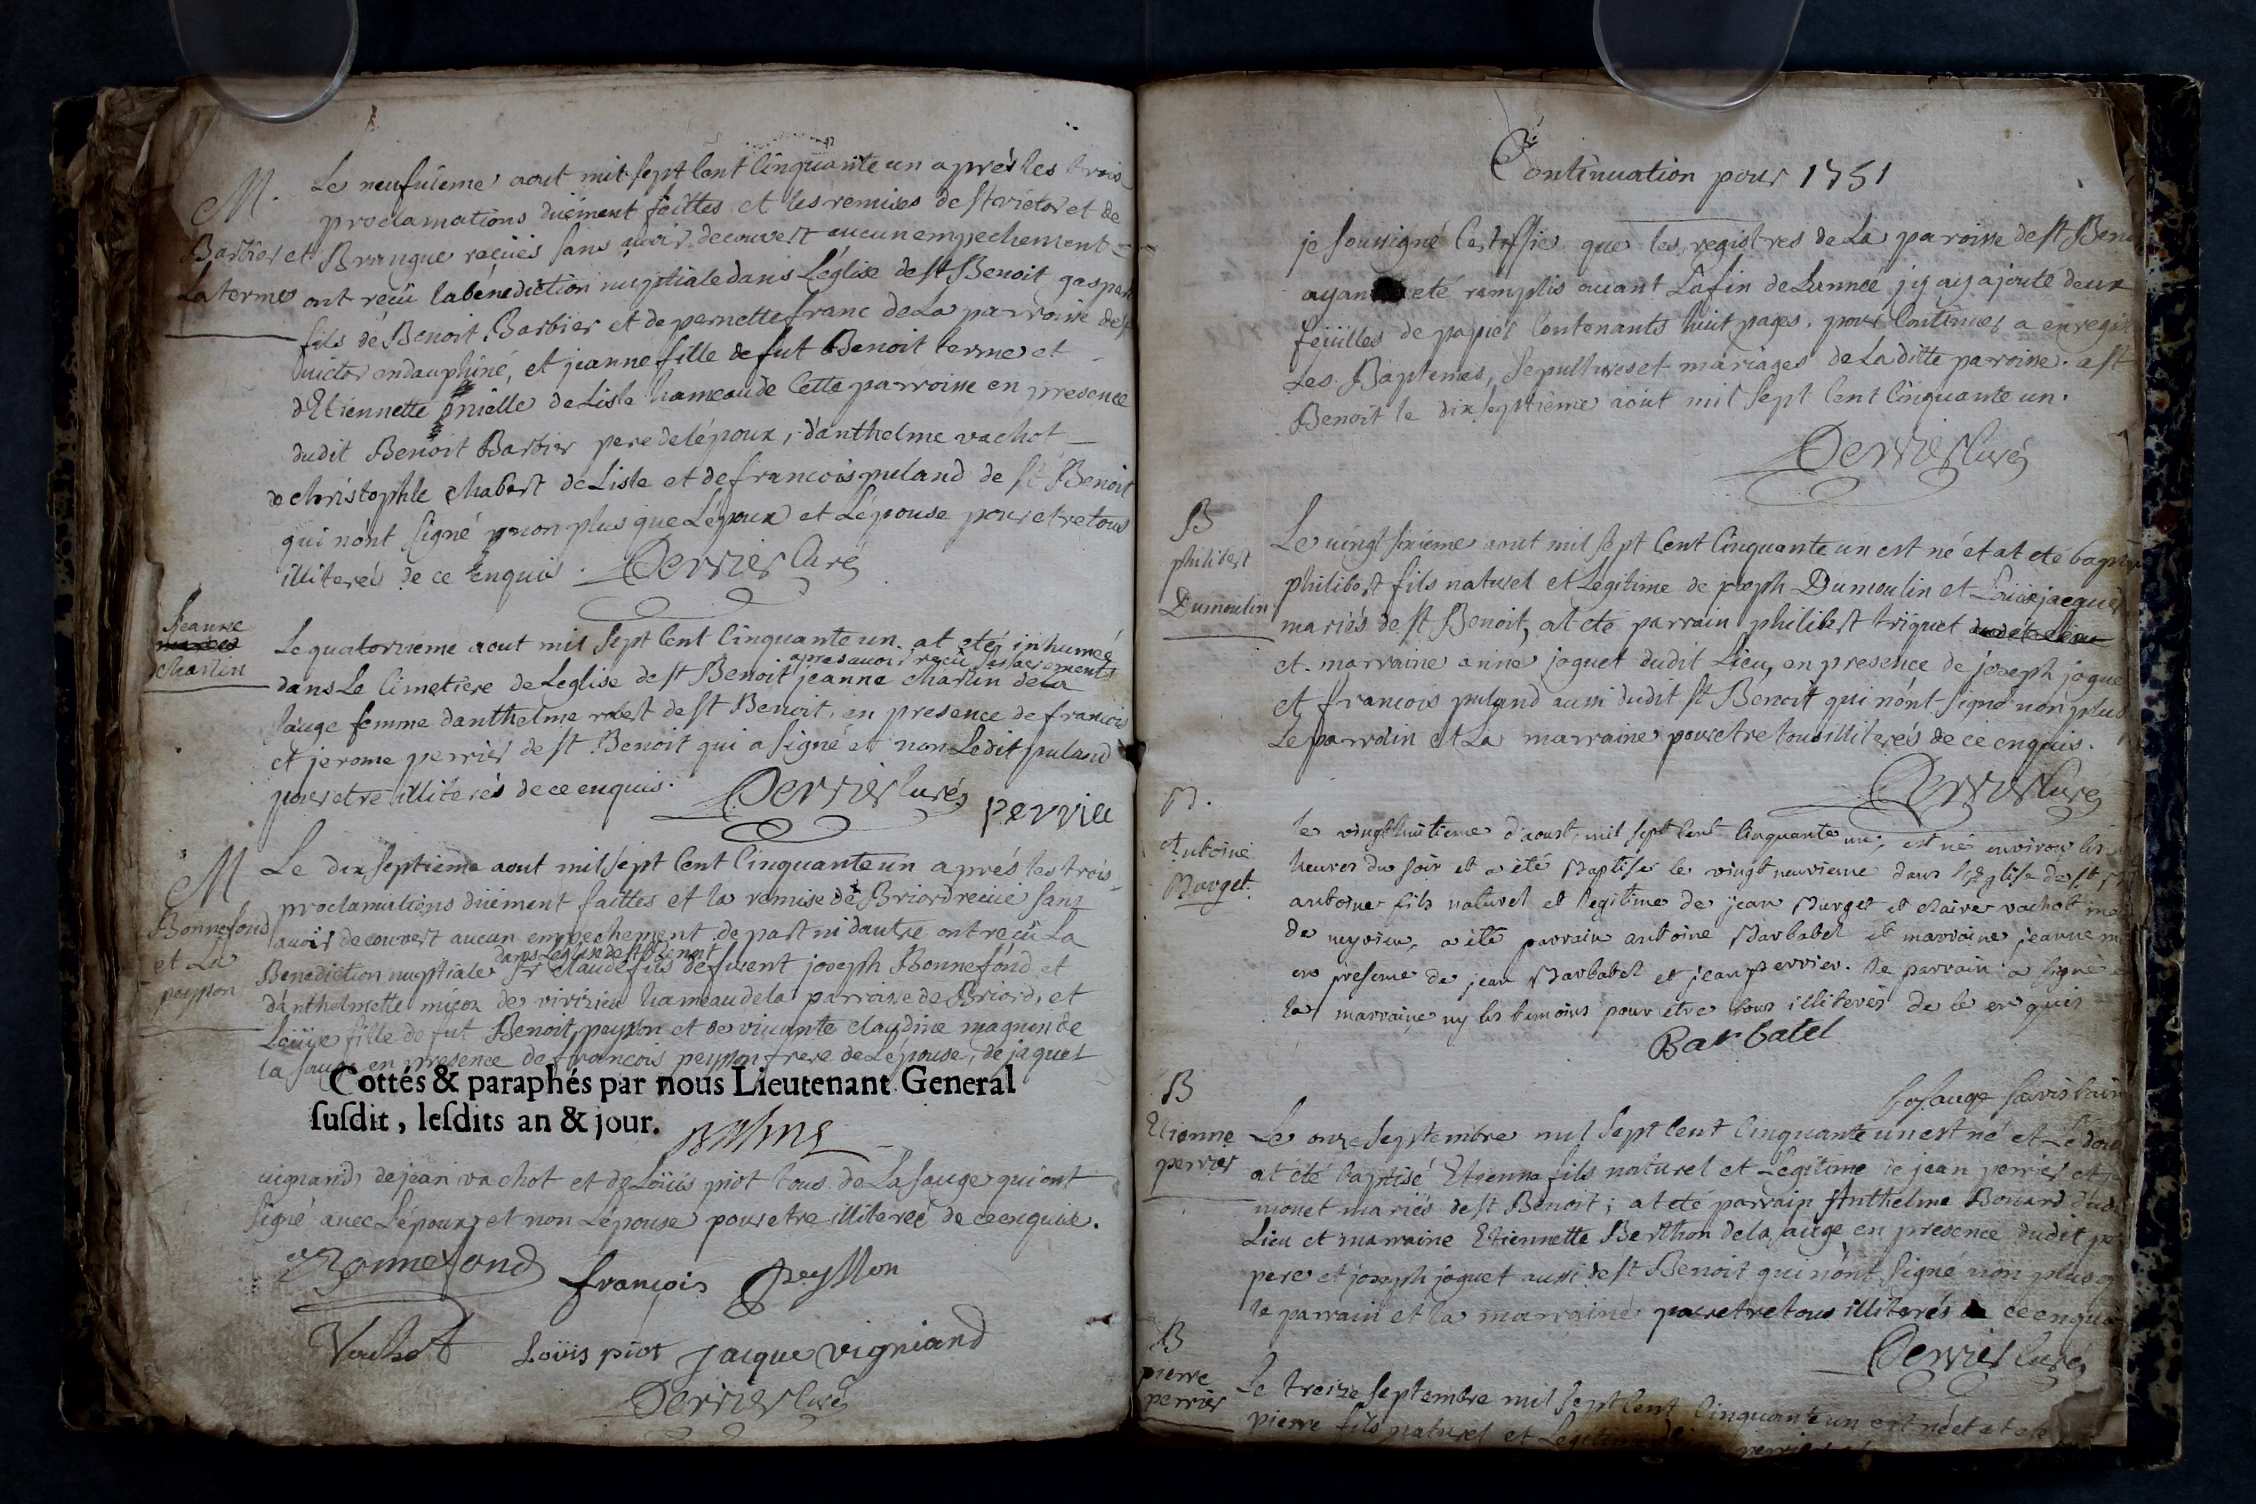 M.
Barbier et
La terme
Le neufuieme aout mil sept Cent Cinquante un aprés les trois
proclamations düement faittes et les remises de st victor et de
Brangue reçuës sans avoir decouvert aucun empechement
ont recû la bénediction nuptiale dans L'église de st Benoit gaspard
fils de Benoit Barbier et de pernette franc de La parroisse de st
victor en dauphiné, et jeanne fille de fut Benoit terme et
d'Etiennette de Lisle hameau de Cette parroisse en presence
dudit Benoit Barbier pere de lépoux, d'anthelme vachot
de christophle chabert de Lisle et de francois puland de st Benoit
qui n'ont signé non plus que L'époux et L'épouse pour etre tous
illiterés de ce enquis. Perrier Curé
Jeanne
charlin
Le quatorzieme aout mil sept Cent Cinquante un. at eté inhumeé
apres avoir reçu Les sacrements
dans Le Cimetiere de Leglise de st Benoit jeanne charlin de La
sauge femme d'anthelme robert de st Benoit, en presence de francois
et jerome perrier de st Benoit qui a signé et non Ledit puland
pour etre illiterés de ce enquis. Perrier Curé perrier
M
Bonnefond
et La
peysson
Le dix septieme aout mil sept Cent Cinquante un aprés les trois
proclamations düement faittes et la remise de Briord recuë sans
avoir decouvert aucun empechement de part ni dautre ont recû La
dans Leglise de st Benoit
Benediction nuptiale claude fils de furent joseph Bonnefond et
d'anthelmette de virizieu hameau de la parroisse de Briord, et
Loüise fille de fut Benoit peysson et de vivante claudine magnin de
la sauge en presence de francois peysson frere de Lépouse, de jaques
Cottés & paraphés par nous Lieutenant General
susdit, lesdits an & jour.
vignand, de jean vachot et de Loüis piot tous de La sauge qui ont
signé avec L'époux et non L'épouse pour etre illitereé de ce enquise.
Bonnefond françois Peysson
Vachot Loüis piot jacque vigniand
Perrier Curé
Continuation pour 1751
je soussigné Certiffie que les registres de La paroisse de st Beno
ayant eté remplis avant La fin de L'année j'y ay ajouté deux
feüilles de papier Contenants huit pages. pour Continuer a enregist
Les Baptemes, sepultures et mariages de La ditte paroisse. a st
Benoit le dix septième aout mil sept Cent Cinquante un.
Perrier Curé
B
philibert
Dumoulin
Le vingt sixieme aout mil sept Cent Cinquante un est né et at eté baptisé
philibert fils naturel et Legitime de joseph Dumoulin et Loüise jacquier
mariés de st Benoit, at eté parrain philibert triquet
et marraine anne joguet dudit Lieu, en presence de joseph jogue
et francois puland aussi dudit st Benoit qui n'ont signé non plus
Le parrain et La marraine pour etre tous illiterés de ce enquis.
Perrier Curé
B.
Antoine
Burget.
le vingt huitieme d'aoust mil sept Cent Cinquante un, est né environ les
heures du soir et a été Baptisé le vingt neuvieme dans l'Eglise de st B
antoine fils naturel et legitime de jean Burget et claire vachot
de meyrieu, a été parrain antoine Barbatel et marraine jeanne
en presence de jean Barbatel et jean perrier. le parrain a signé
la marraine ny les temoins pour etre tous illiterés de ce enquis
Barbatel
B
Etienne
perrier
Le onze septembre mil sept Cent Cinquante un est né et Le dou
at été baptisé Etienne fils naturel et Légitime de jean perrier et
monet mariés de st Benoit; at eté parrain Anthelme Bonard dud
Lieu et marraine Etiennette Berthon de la sauge en presence dudit
pere et joseph joguet aussi de st Benoit qui n'ont signé non plus q
le parrain et la marraine pour etre tous illiterés de ce enquis
Perrier Curé
B
pierre
perrier
Le treize septembre mil sept Cent Cinquante un est né et at eté
pierre fils naturel et Legitime